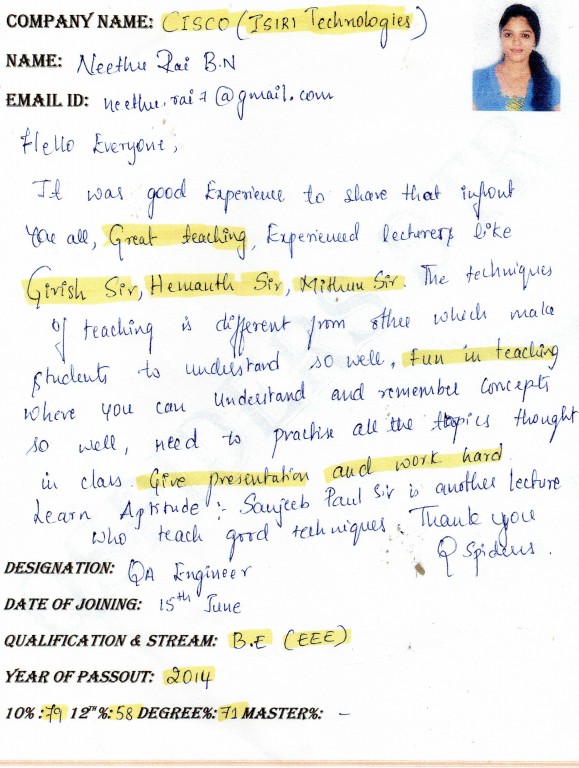 COMPANY NAME: CISCO (ISIRI Technologies)
NAME: Neethu Rai B.N
EMAIL ID: neethu.rai7@gmail.com
Hello Everyone,
It was good Experience to share that infront
you all, Great teaching, Experienced lecturers like
Girish Sir, Hemanth Sir, Mithun Sir. The techniques
of teaching is different from other which make
students to understand so well, fun in teaching
where you can Understand and remember concepts
so well, need to practise all the topics thought
in class. Give presentation and work hard
Learn Aptitude :- Sanjeeb Paul Sir is another lecture
who teach good techniques. Thank you
Q Spiders.
DESIGNATION: QA Engineer
DATE OF JOINING: 15th June
QUALIFICATION & STREAM: B.E (EEE)
YEAR OF PASSOUT: 2014
10% : 79 12TH %: 58 DEGREE%: 71 MASTER%: -